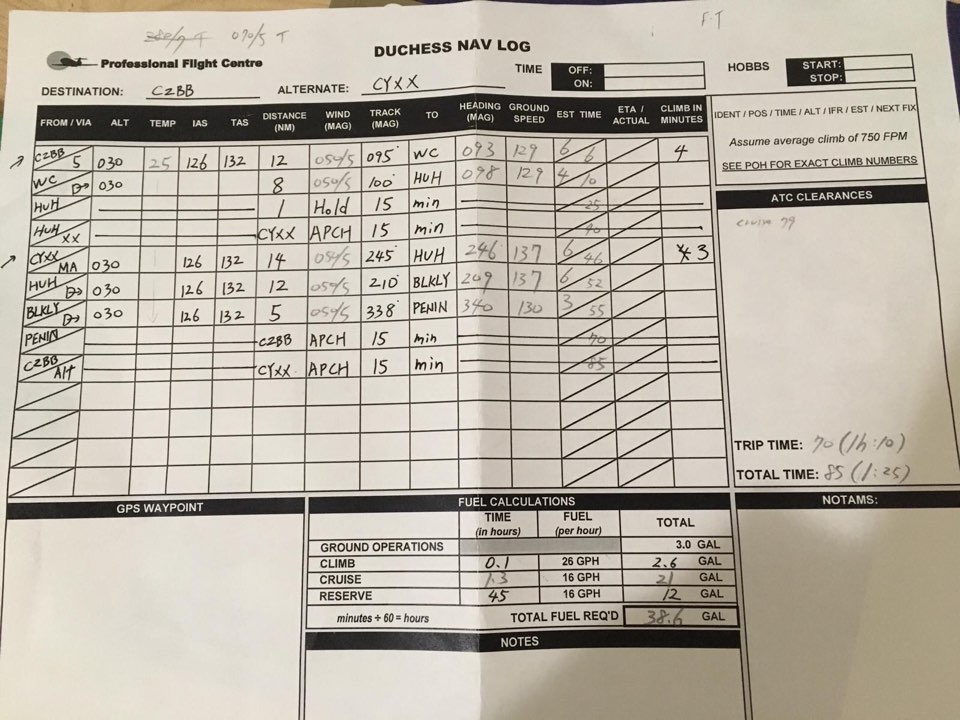 070/5 T
F.T
Professional Flight Centre
DUCHESS NAV LOG
TIME OFF: ON:
HOBBS START: STOP:
DESTINATION: CZBB ALTERNATE: CYXX
FROM / VIA ALT TEMP IAS TAS DISTANCE (NM) WIND (MAG) TRACK (MAG) TO HEADING (MAG) GROUND SPEED EST TIME ETA / ACTUAL CLIMB IN MINUTES
CZBB 5 030 25 126 132 12 050/5 095° WC 093 129 6 6 4
WC D→ 030 8 050/5 100° HUH 098 129 4 10
HUH 1 Hold 15 min 25
HUH XX CYXX APCH 15 min 40
CYXX MA 030 126 132 14 050/5 245° HUH 246 137 6 46 3
HUH D→ 030 126 132 12 050/5 210° BLKLY 209 137 6 52
BLKLY D→ 030 126 132 5 050/5 338° PENIN 340 130 3 55
PENIN CZBB APCH 15 min 70
CZBB Alt CYXX APCH 15 min 85
IDENT / POS / TIME / ALT / IFR / EST / NEXT FIX
Assume average climb of 750 FPM
SEE POH FOR EXACT CLIMB NUMBERS
ATC CLEARANCES
TRIP TIME: 70 (1h:10)
TOTAL TIME: 85 (1:25)
GPS WAYPOINT
FUEL CALCULATIONS
TIME (in hours) FUEL (per hour) TOTAL
GROUND OPERATIONS 3.0 GAL
CLIMB 0.1 26 GPH 2.6 GAL
CRUISE 1.3 16 GPH 21 GAL
RESERVE 45 16 GPH 12 GAL
minutes ÷ 60 = hours TOTAL FUEL REQ'D 38.6 GAL
NOTES
NOTAMS: